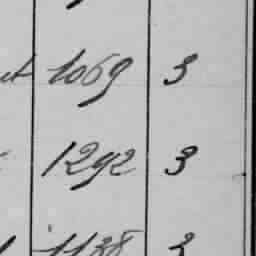 1069 3
1292 3
1138 3